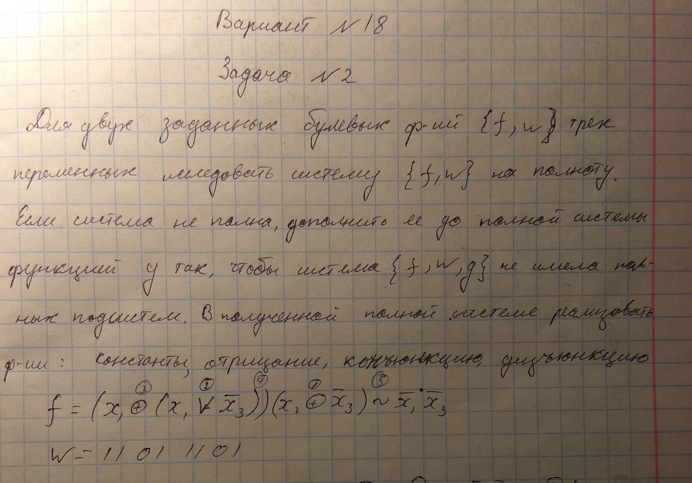 Вариант №18
Задача №2
Для двух заданных булевых ф-ий {f, w} трех
переменных исследовать систему {f, w} на полноту.
Если система не полна, дополнить ее до полной системы
функцией g так, чтобы система {f, w, g} не имела пол-
ных подсистем. В полученной полной системе реализовать
ф-ии: константы, отрицание, конъюнкцию, дизъюнкцию
f = (x₁ ⊕ (x₁ ∨ x̄₃))(x₂ ⊕ x̄₃) ~ x̄₁ x̄₃
w = 11 01 11 01